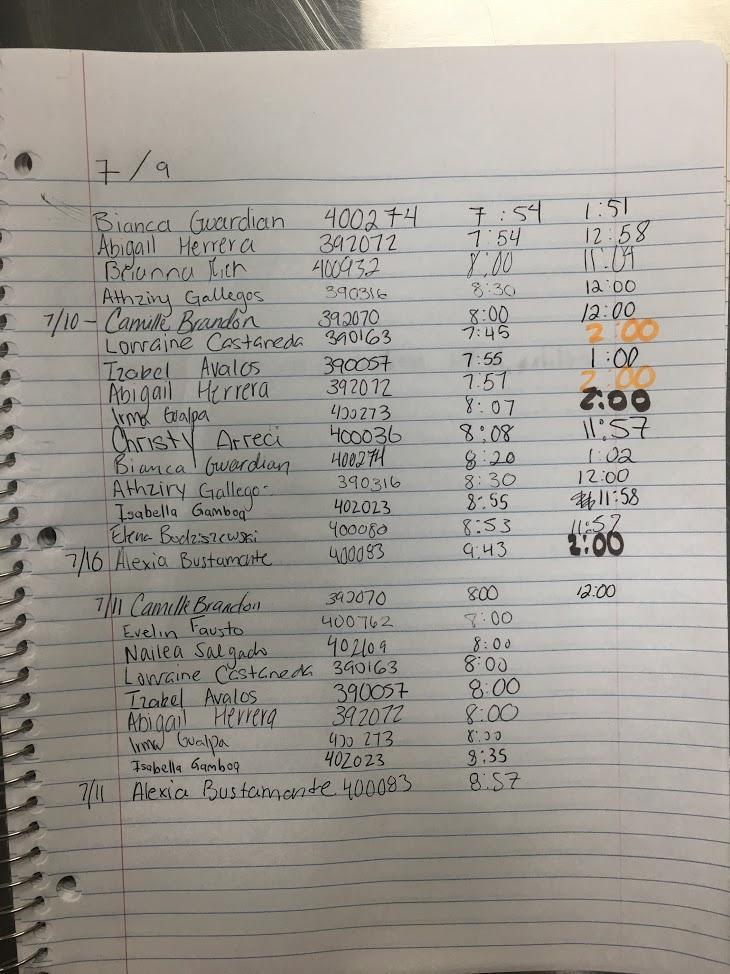 7/9
Bianca Guardian 400274 7:54 1:51
Abigail Herrera 392072 7:54 12:58
Brianna Rich 400932 8:00 11:09
Athziry Gallegos 390316 8:30 12:00
7/10 - Camille Brandon 392070 8:00 12:00
Lorraine Castaneda 390163 7:45 2:00
Izabel Avalos 390057 7:55 1:00
Abigail Herrera 392072 7:57 2:00
Irma Gualpa 400273 8:07 2:00
Christy Arreci 400036 8:08 11:57
Bianca Guardian 400274 8:20 1:02
Athziry Gallegos 390316 8:30 12:00
Isabella Gamboa 402023 8:55 11:58
Elena Bodziszewski 400080 8:53 11:57
7/10 Alexia Bustamante 400083 9:43 2:00
7/11 Camille Brandon 392070 800 12:00
Evelin Fausto 400762 8:00
Nailea Salgado 402109 8:00
Lorraine Castaneda 390163 8:00
Izabel Avalos 390057 8:00
Abigail Herrera 392072 8:00
Irma Gualpa 400273 8:00
Isabella Gamboa 402023 8:35
7/11 Alexia Bustamante 400083 8:57